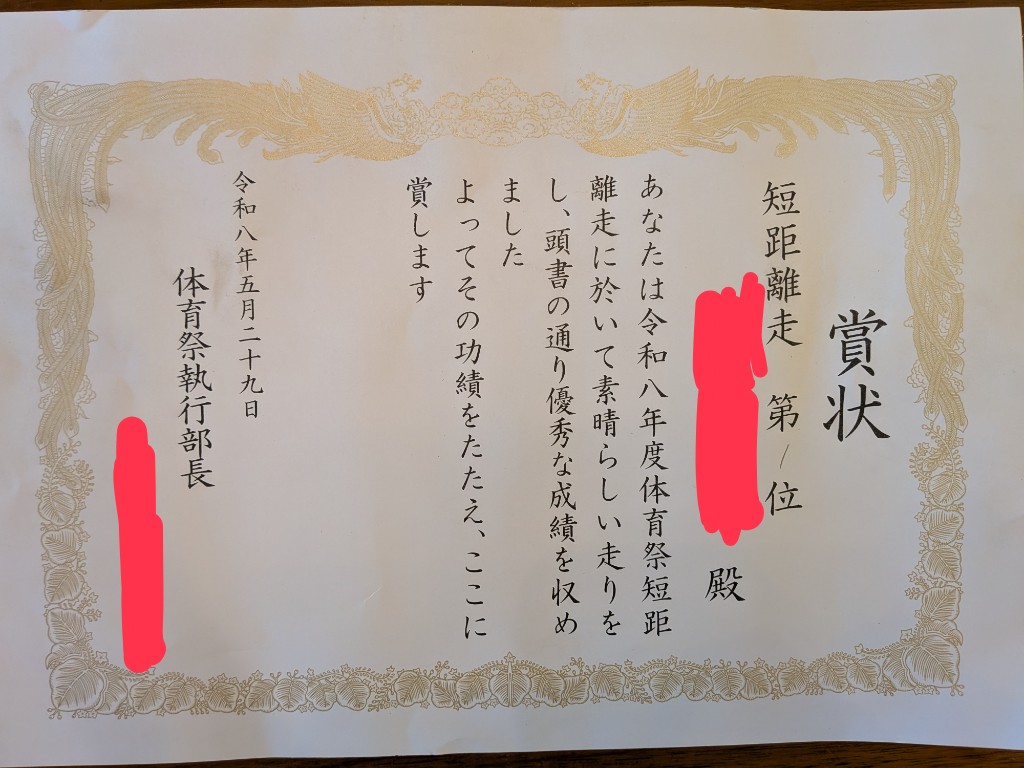 賞状
短距離走 第1位
殿
あなたは令和八年度体育祭短距
離走に於いて素晴らしい走りを
し、頭書の通り優秀な成績を収め
ました
よってその功績をたたえ、ここに
賞します
令和八年五月二十九日
体育祭執行部長